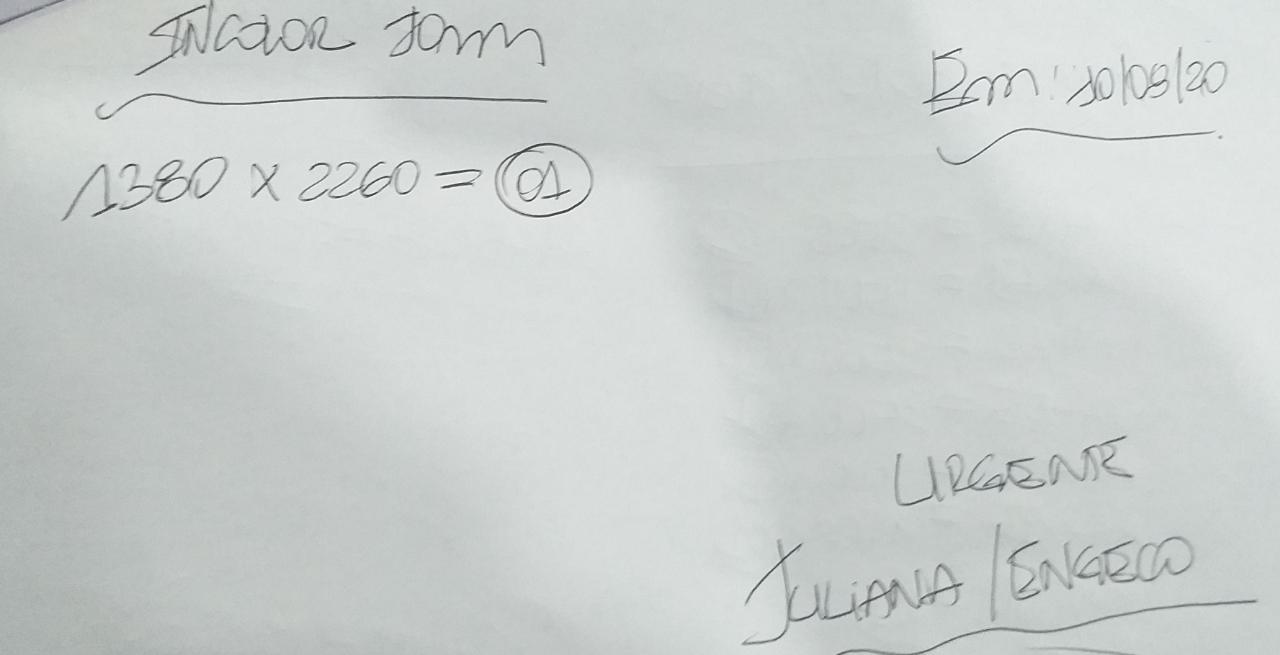 INCOLOR 10mm
Em: 10/08/20
1380 x 2260 = 01
URGENTE
JULIANA / ENGECO